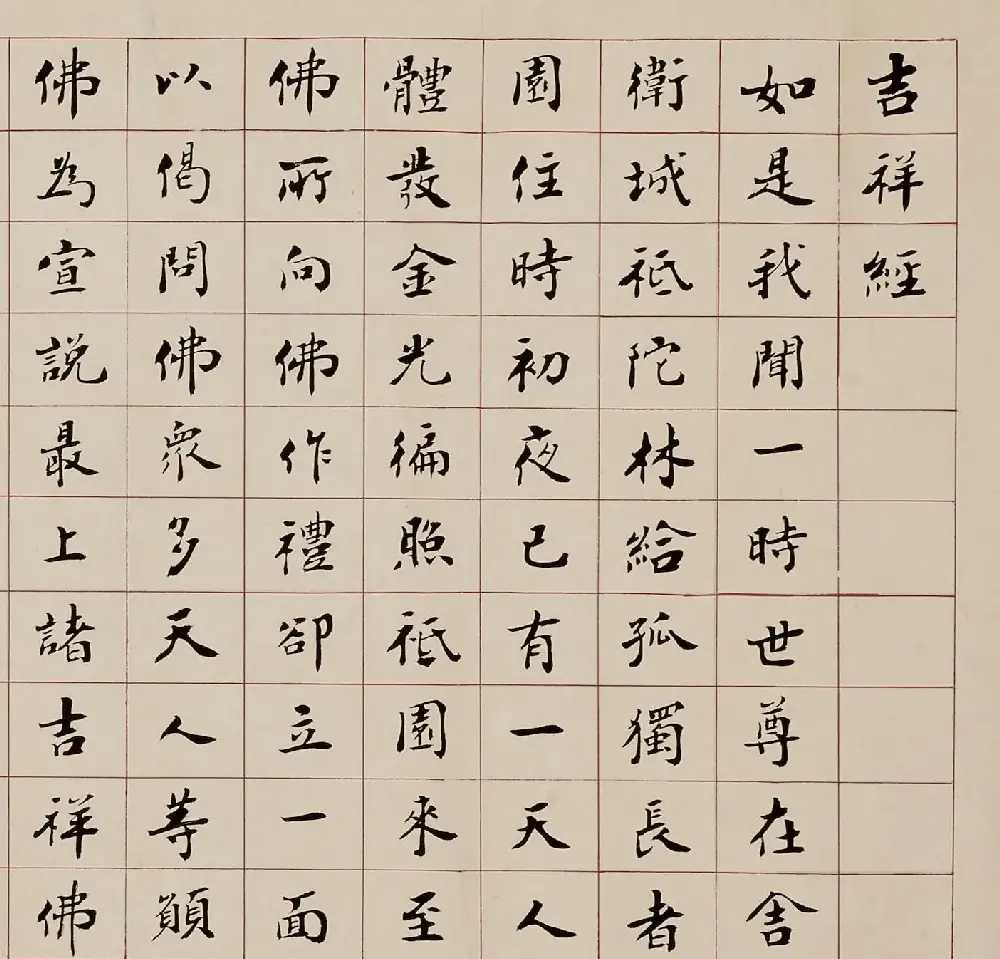 吉祥經
如是我聞一時世尊在舍
衛城祗陀林給孤獨長者
園住時初夜已有一天人
體發金光徧照祗園來至
佛所向佛作禮卻立一面
以偈問佛眾多天人等願
佛為宣說最上諸吉祥佛